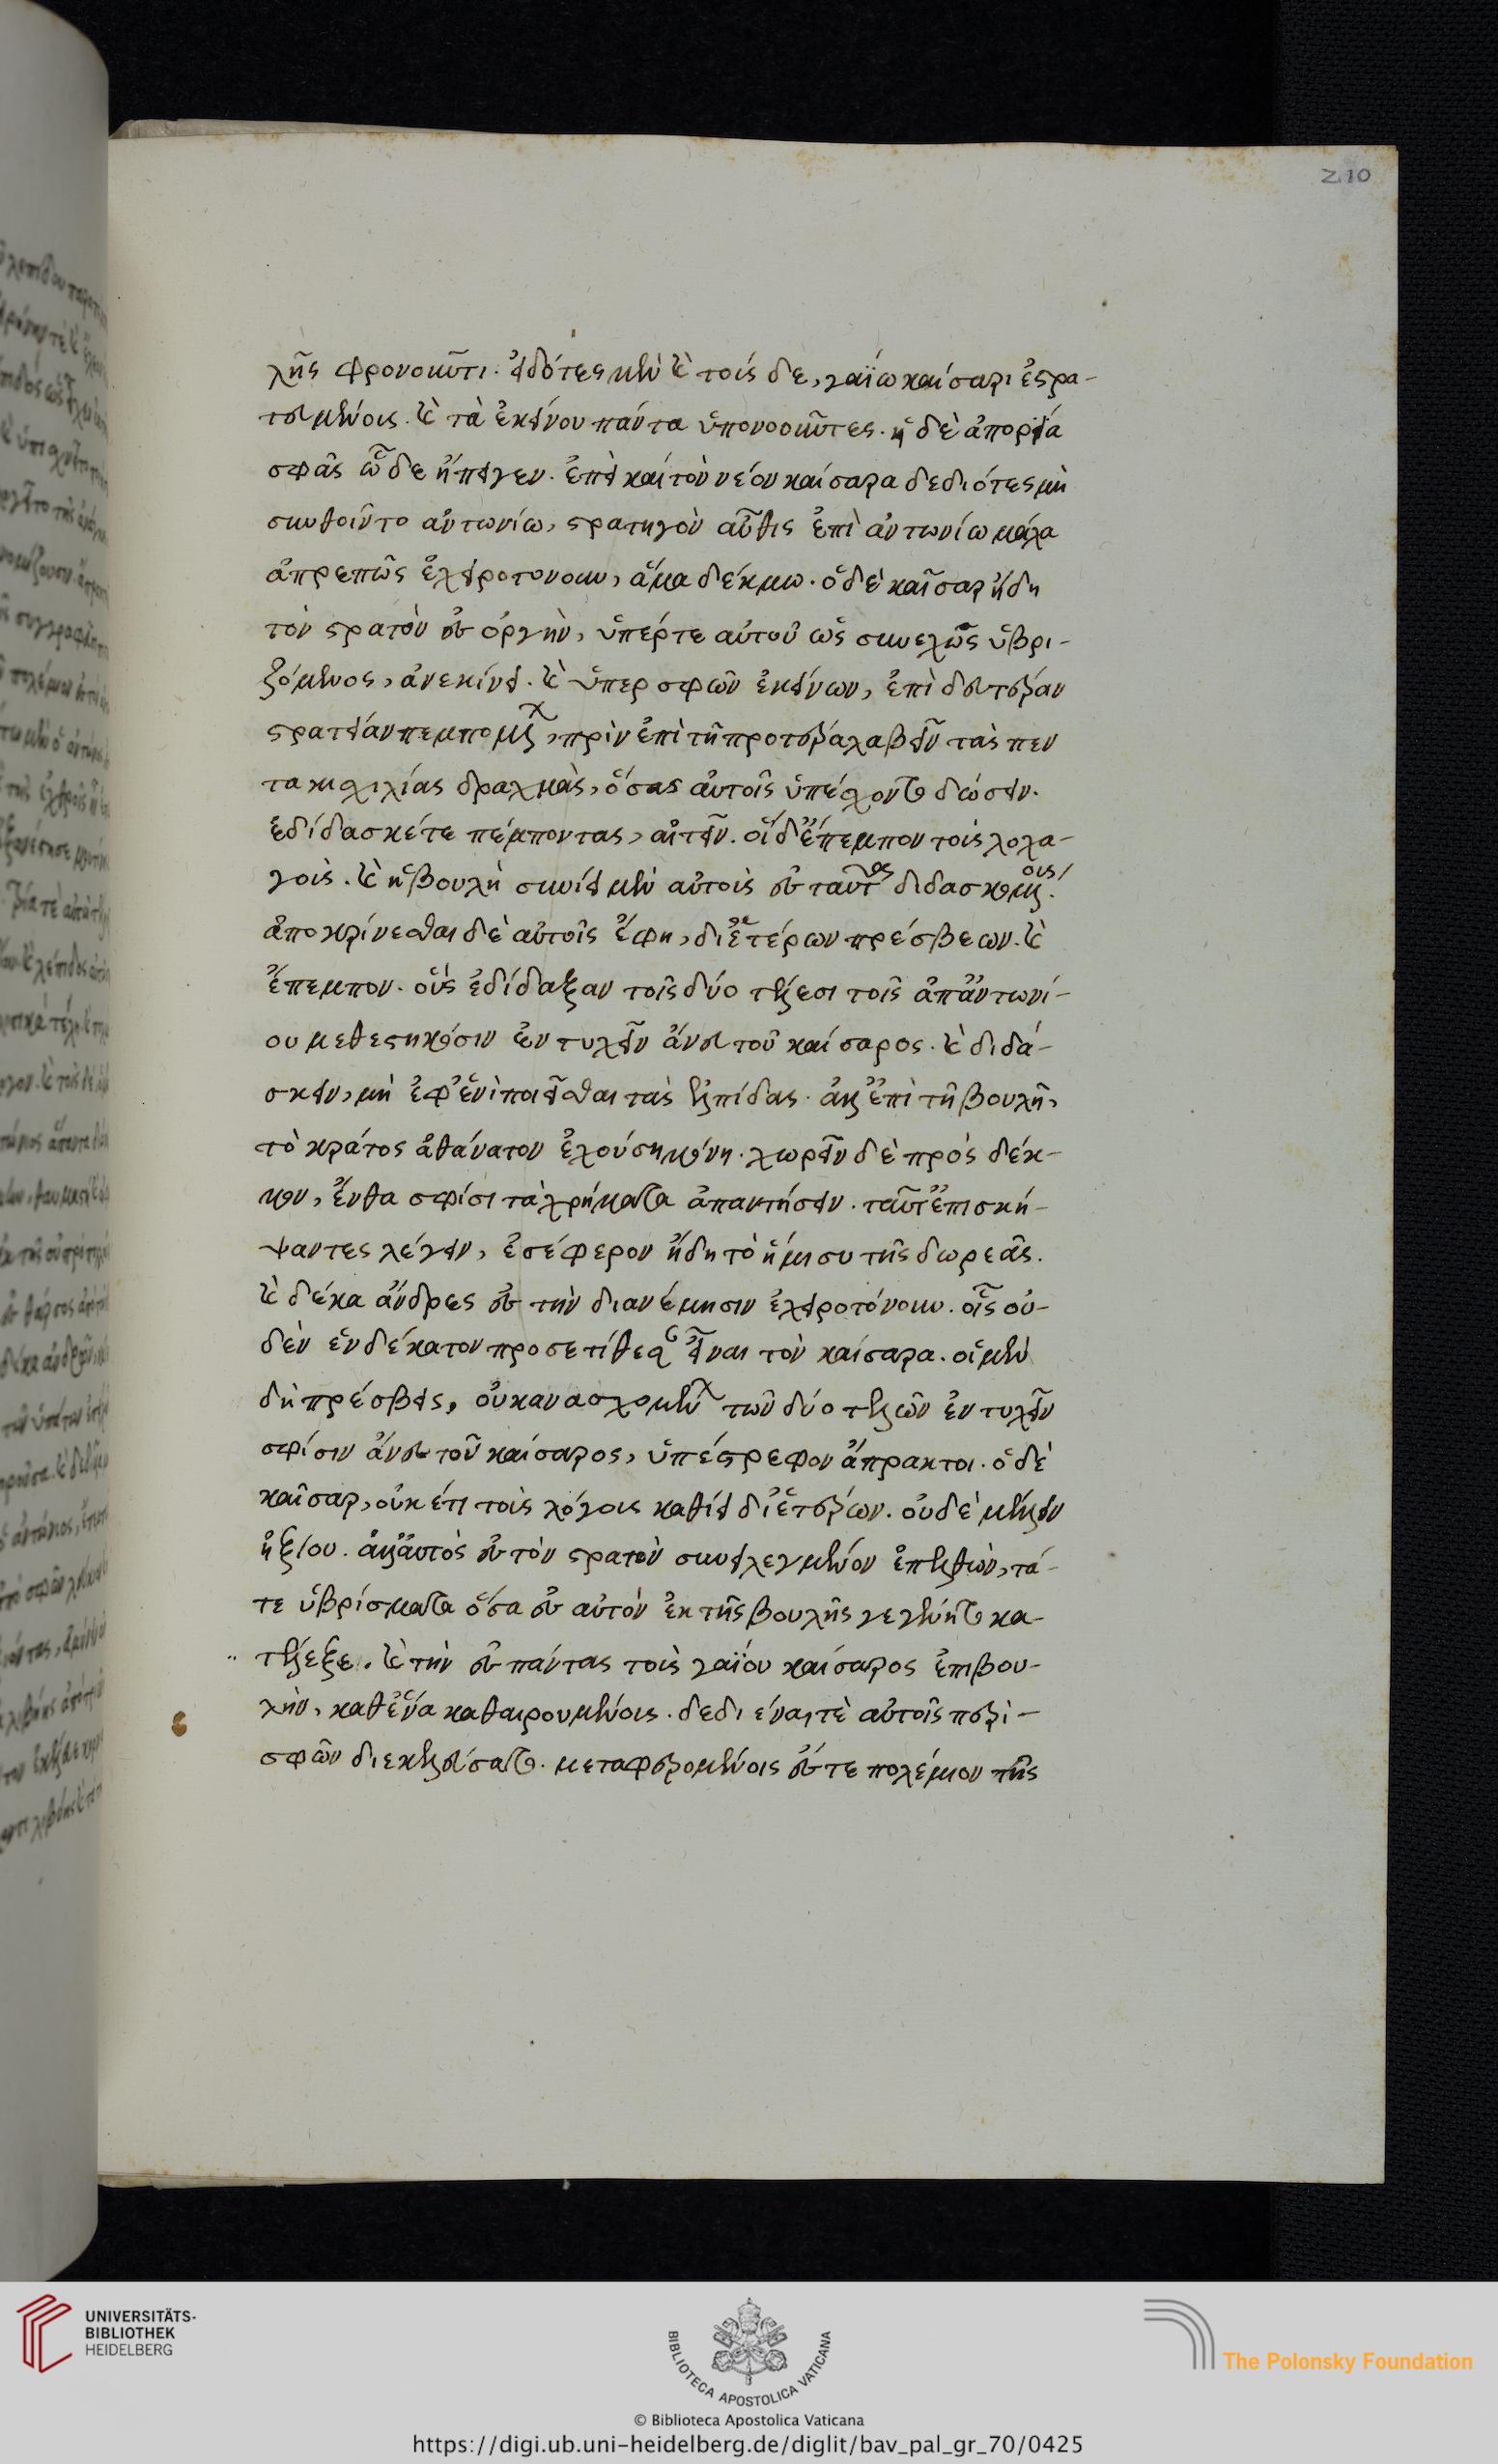 210
λῆς φρονοῦντι. εἰδότες μὲν καὶ τούσδε, γαΐω καίσαρι ἐστρα-
τευμένους. καὶ τὰ ἐκείνου πάντα ὑπονοοῦντες. ἡ δὲ ἀπορία
σφᾶς ὧδε ἤπειγεν. ἐπεὶ καὶ τὸν νέον καίσαρα δεδιότες μὴ
συνθοῖντο ἀντωνίω, στρατηγὸν αὖθις ἐπὶ ἀντωνίω μάλα
ἀπρεπῶς ἐχειροτόνουν, ἅμα δέκμω. ὁ δὲ καῖσαρ ἤδη
τὸν στρατὸν ἐς ὀργὴν, ὑπέρτε αὐτοῦ ὡς συνεχῶς ὑβρι-
ζόμενος, ἀνεκίνει. καὶ ὑπερ σφῶν ἐκείνων, ἐπὶ δευτέραν
στρατείαν πεμπομένων, πρὶν ἐπὶ τῆ προτέρα λαβεῖν τὰς πεν
τακισχιλίας δραχμὰς, ὅσας αὐτοῖς ὑπέσχοντο δώσειν.
ἐδίδασκέτε πέμποντας, αἰτεῖν. οἱ δ' ἔπεμπον τοὺς λοχα-
γούς. καὶ ἡ βουλὴ συνίει μὲν αὐτοὺς ἐς ταῦτα διδασκομένους.
ἀποκρίνεσθαι δὲ αὐτοῖς ἔφη, δι' ἑτέρων πρέσβεων. καὶ
ἔπεμπον. οὓς ἐδίδαξαν τοῖς δύο τέλεσι τοῖς ἀπ' ἀντωνί-
ου μεθεστηκόσιν ἐντυχεῖν ἄνευ τοῦ καίσαρος. καὶ διδά-
σκειν, μὴ ἐφ' ἑνὶ ποιεῖσθαι τὰς ἐλπίδας. ἀλλ' ἐπὶ τῆ βουλῆ,
τὸ κράτος ἀθάνατον ἐχούση μόνη. χωρεῖν δὲ πρὸς δέκ-
μον, ἔνθα σφίσι τὰ χρήματα ἀπαντήσειν. ταῦτ' ἐπισκή-
ψαντες λέγειν, ἐσέφερον ἤδη τὸ ἥμισυ τῆς δωρεᾶς.
καὶ δέκα ἄνδρες ἐς τὴν διανέμησιν ἐχειροτόνουν. οἷς οὐ-
δὲν ἑνδέκατον προσετίθεσαν εἶναι τὸν καίσαρα. οἱ μὲν
δὴ πρέσβεις, οὐκ ἀνασχομένων τῶν δύο τελῶν ἐντυχεῖν
σφίσιν ἄνευ τοῦ καίσαρος, ὑπέστρεφον ἄπρακτοι. ὁ δὲ
καῖσαρ, οὐκ ἔτι τοὺς λόγους καθίει δι' ἑτέρων. οὐδὲ μέλλειν
ἠξίου. ἀλλ' αὐτὸς ἐς τὸν στρατὸν συνειλεγμένον ἐπελθὼν, τά-
τε ὑβρίσματα ὅσα ἐς αὐτὸν ἐκ τῆς βουλῆς γεγένητο κα-
τέλεξε. καὶ τὴν ἐς πάντας τοὺς γαΐου καίσαρος ἐπιβου-
λὴν, καθ' ἕνα καθαιρουμένους. δεδιέναι τὲ αὐτοῖς περὶ-
σφῶν διεκελεύσατο. μεταφερομένοις ἔς τε πολέμιον τῆς
UNIVERSITÄTS-
BIBLIOTHEK
HEIDELBERG
BIBLIOTECA APOSTOLICA VATICANA
The Polonsky Foundation
© Biblioteca Apostolica Vaticana
https://digi.ub.uni-heidelberg.de/diglit/bav_pal_gr_70/0425